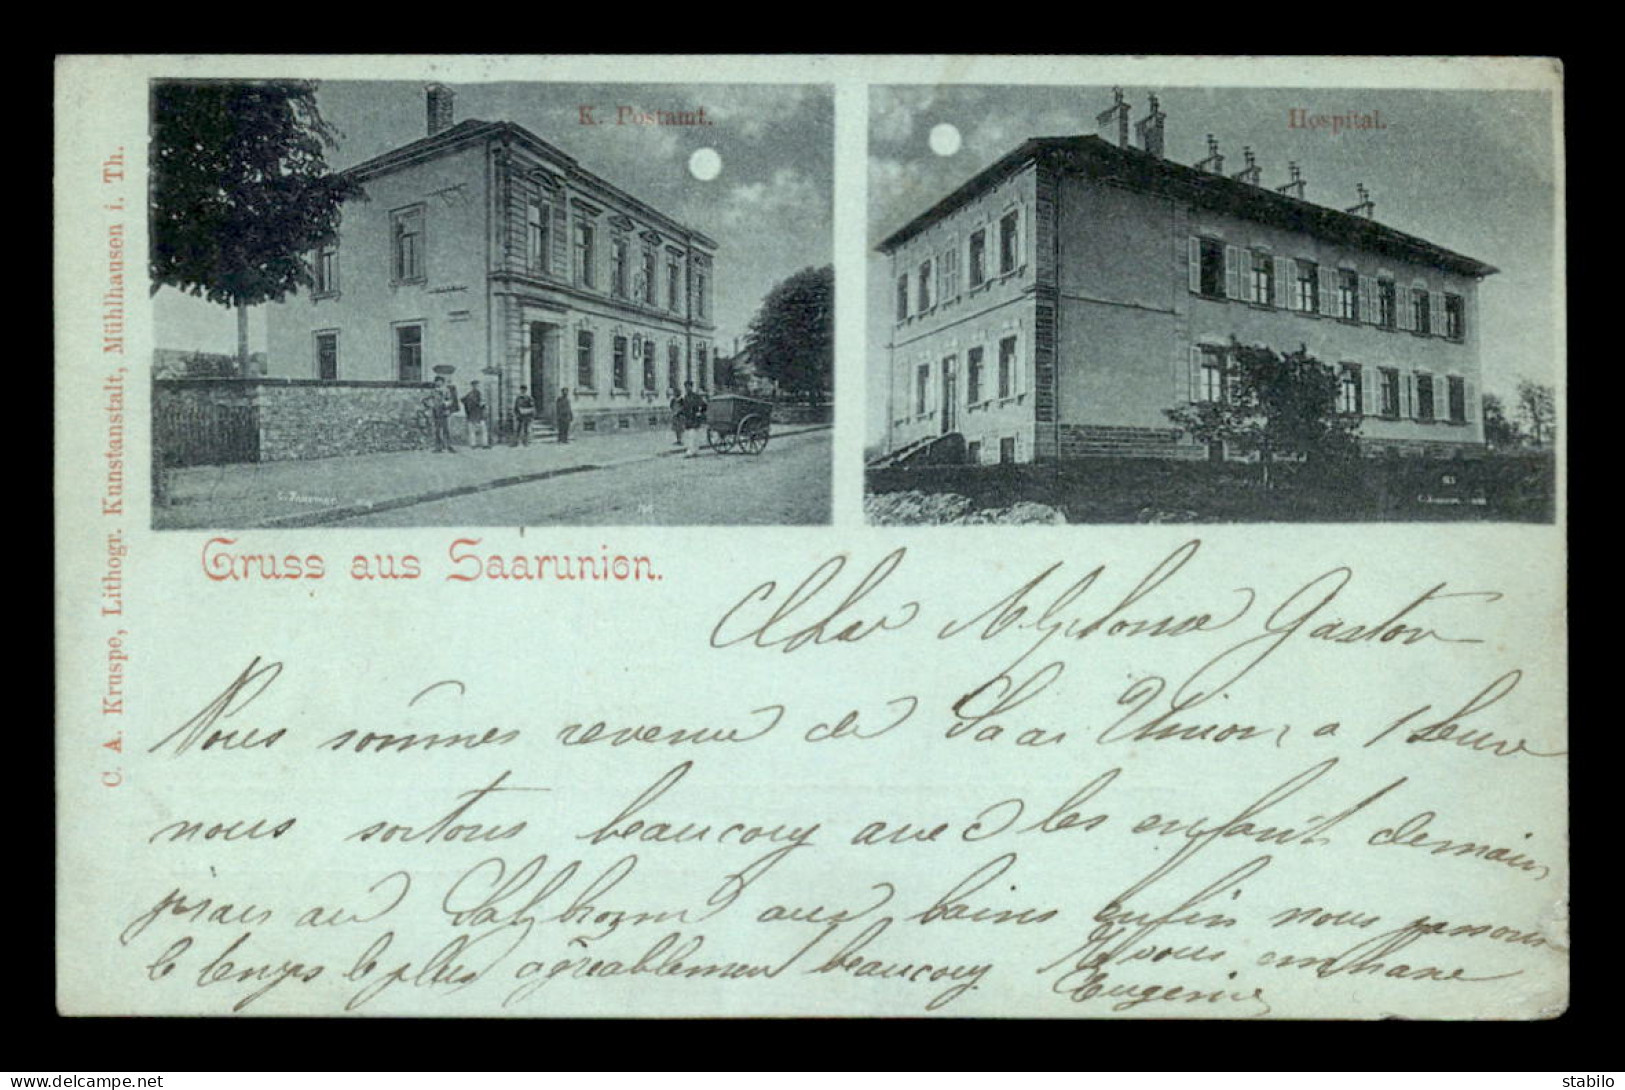 K. Postamt.
Hospital.
C. A. Kruspe, Lithogr. Kunstanstalt, Mühlhausen i. Th.
Gruss aus Saarunion.
Cher Alphonse Gaston
Nous sommes revenu de Saar Union, a 1 heure
nous sortons beaucoup avec les enfant demain
au Salzbronn aux bains enfin nous passons
le temps le plus agréablemen beaucoup. vous embrasse
Eugenie
stabilo